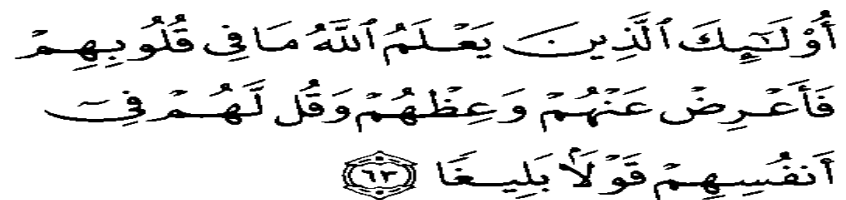 أُوْلَـٰٓئِكَ ٱلَّذِينَ يَعْلَمُ ٱللَّهُ مَا فِى قُلُوبِهِمْ
فَأَعْرِضْ عَنْهُمْ وَعِظْهُمْ وَقُل لَّهُمْ فِىٓ
أَنفُسِهِمْ قَوْلًۢا بَلِيغًا ﴿٦٣﴾